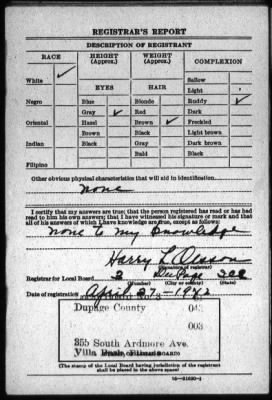 REGISTRAR'S REPORT
DESCRIPTION OF REGISTRANT
RACE HEIGHT (Approx.) WEIGHT (Approx.) COMPLEXION
White ✓ Sallow
EYES HAIR Light
Negro Blue Blonde Ruddy ✓
Gray ✓ Red Dark
Oriental Hazel Brown ✓ Freckled
Brown Black Light brown
Indian Black Gray Dark brown
Bald Black
Filipino
Other obvious physical characteristics that will aid in identification
None
I certify that my answers are true; that the person registered has read or has had read to him his own answers; that I have witnessed his signature or mark and that all of his answers of which I have knowledge are true, except as follows:
None to my knowledge
Harry L
(Signature of registrar)
Registrar for Local Board 2 DuPage Ill
(Number) (City or county)
Date of registration April 27-1942
Dupage County 04
003
355 South Ardmore Ave.
Villa Park, Illinois
(The stamp of the Local Board having jurisdiction of the registrant shall be placed in the above space)